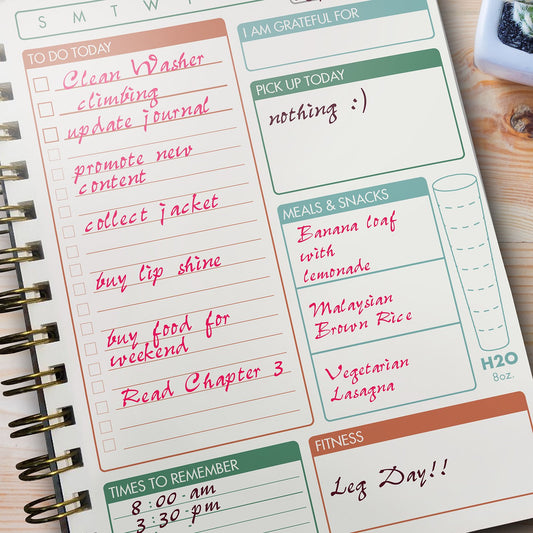 S M T W T
TO DO TODAY
Clean Washer
climbing
update journal
promote new
content
collect jacket
buy lip shine
buy food for
weekend
Read Chapter 3
I AM GRATEFUL FOR
PICK UP TODAY
nothing :)
MEALS & SNACKS
Banana loaf
with
lemonade
Malaysian
Brown Rice
Vegetarian
Lasagna
H2O
8oz.
TIMES TO REMEMBER
8:00-am
3:30-pm
FITNESS
Leg Day!!